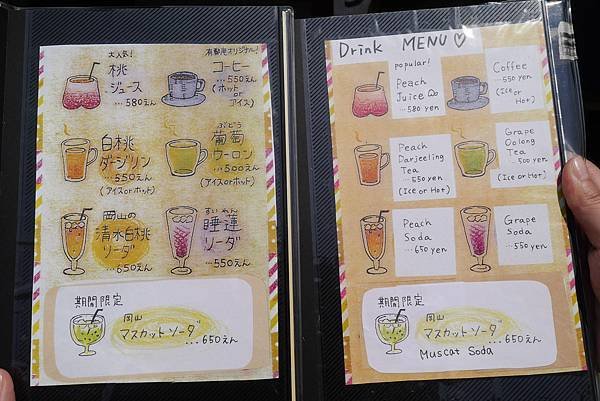 大人気!
桃
ジュース
…580えん
有鄰庵オリジナル!
コーヒー
…550えん
(ホット
or
アイス)
白桃
ダージリン
…550えん
(アイスorホット)
ぶどう
葡萄
ウーロン
…500えん
(アイスorホット)
岡山の
清水白桃
ソーダ
…650えん
すいれん
睡蓮
ソーダ
…550えん
期間限定
岡山
マスカットソーダ
…650えん
Drink MENU♡
popular!
Peach
Juice
… 580 yen
Coffee
… 550
yen
(Ice or
Hot)
Peach
Darjeeling
Tea
… 550 yen
(Ice or Hot)
Grape
Oolong
Tea
… 500 yen
(Ice or Hot)
Peach
Soda
… 650 yen
Grape
Soda
… 550 yen
期間限定
岡山
マスカットソーダ
…650えん
Muscat Soda